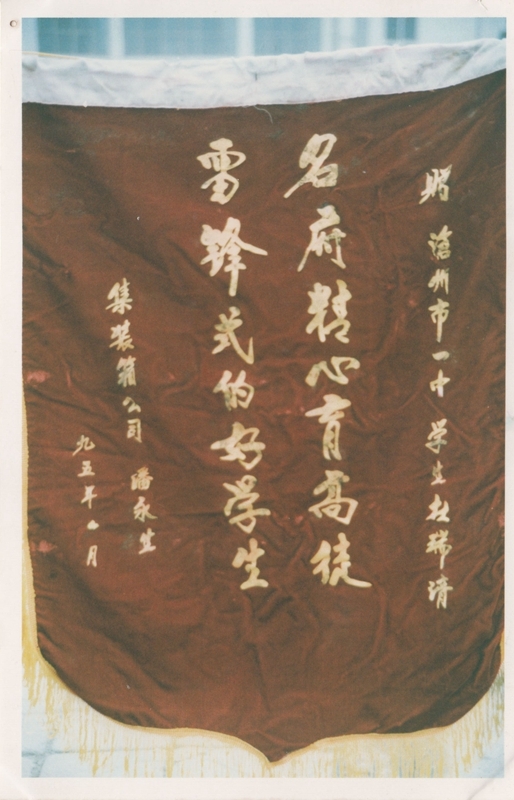 赐 沧州市一中 学生杜瑞清
名府精心育高徒
雷锋式的好学生
集装箱公司 潘永生
九五年 月